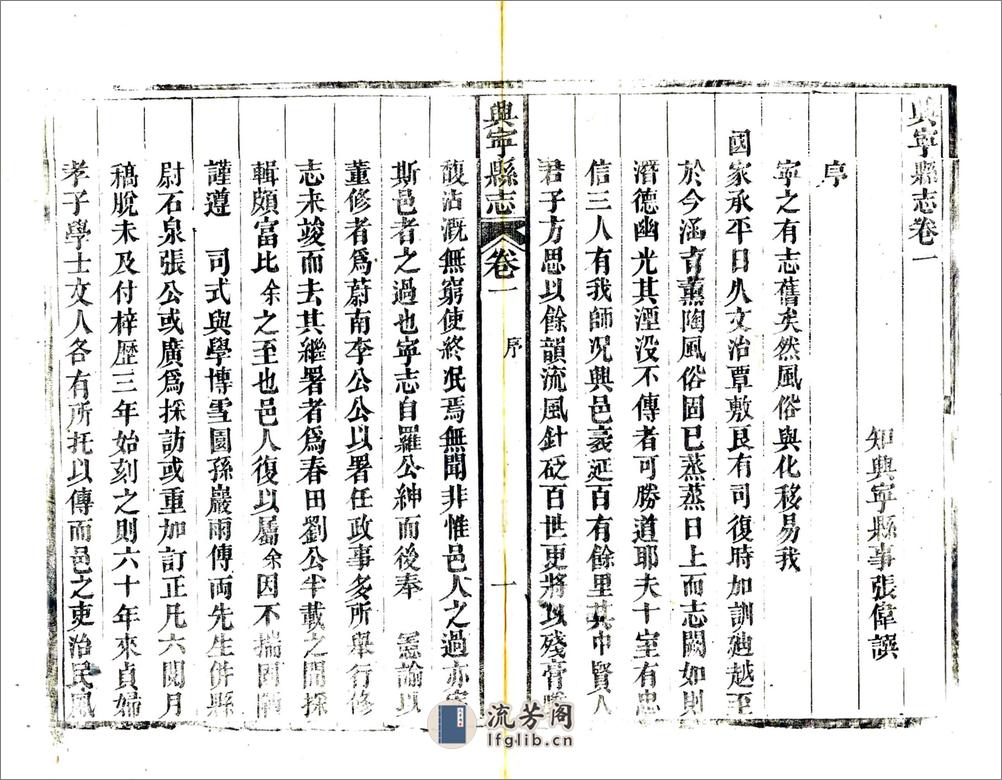 興寧縣志卷一
知興寧縣事張偉譔
序
寧之有志舊矣然風俗與化移易我
國家承平日久文治覃敷良有司復時加訓廸越至
於今涵育薰陶風俗固已蒸蒸日上而志闕如則
潛德幽光其湮没不傳者可勝道耶夫十室有忠
信三人有我師况興邑袤延百有餘里其中賢人
君子方思以餘韻流風針砭百世更將以殘膏賸
興寧縣志
卷一
序
一
馥沾漑無窮使終泯焉無聞非惟邑人之過亦宰
斯邑者之過也寧志自羅公紳而後奉 憲諭以
董修者爲蔚南李公公以署任政事多所舉行修
志未竣而去其繼署者爲春田劉公半載之間採
輯頗富比余之至也邑人復以屬余因不揣固陋
謹遵 司式與學博雪園孫巖雨傅両先生併縣
尉石泉張公或廣爲採訪或重加訂正凡六閱月
稿脫未及付梓歷三年始刻之則六十年來貞婦
孝子學士文人各有所托以傳而邑之吏治民風
流芳阁
lfglib.cn